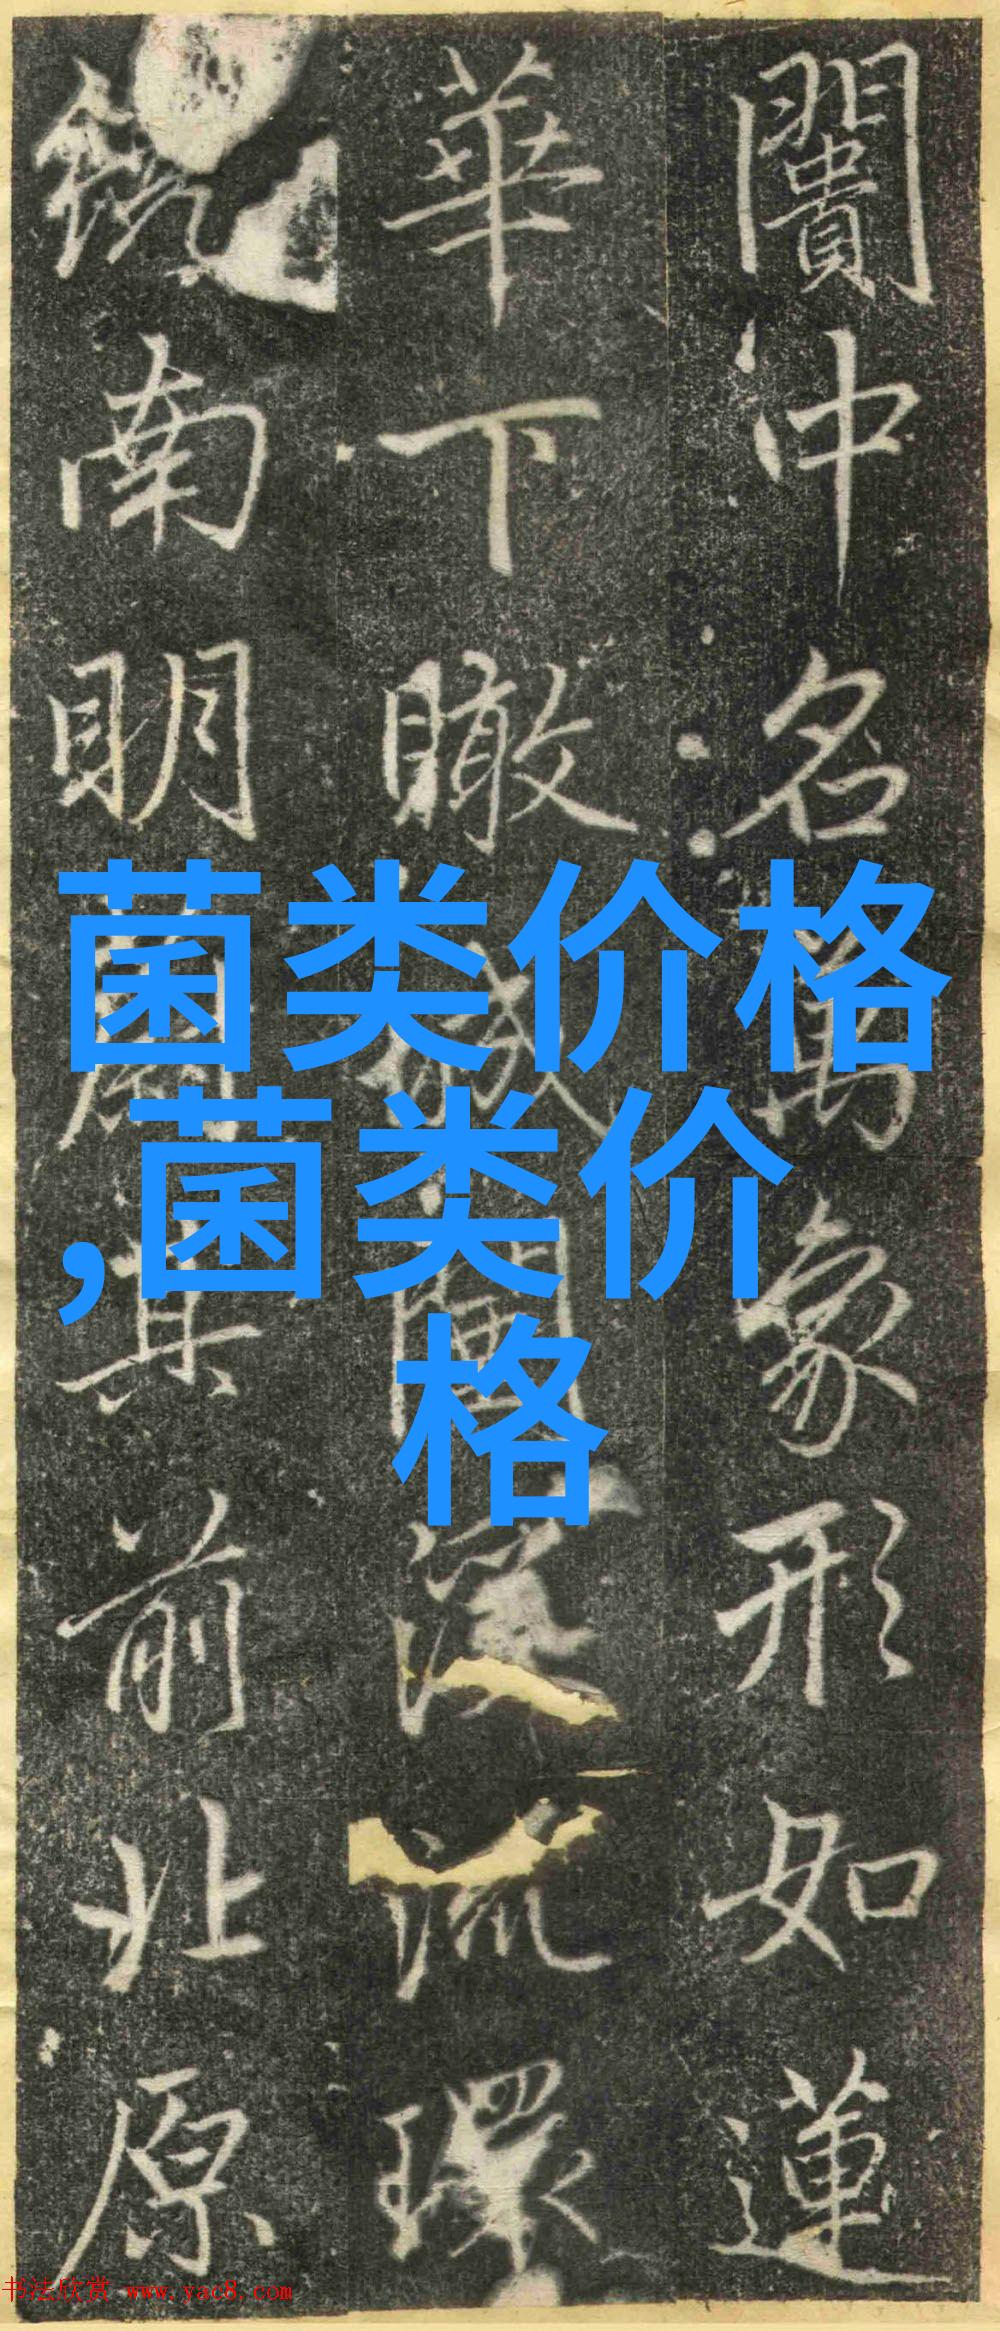 闠冲名萬象形如蓮
華下瞰城闉深流環
南明其前北原
菌类价格
,菌类价
格
书法欣赏 www.yac8.com